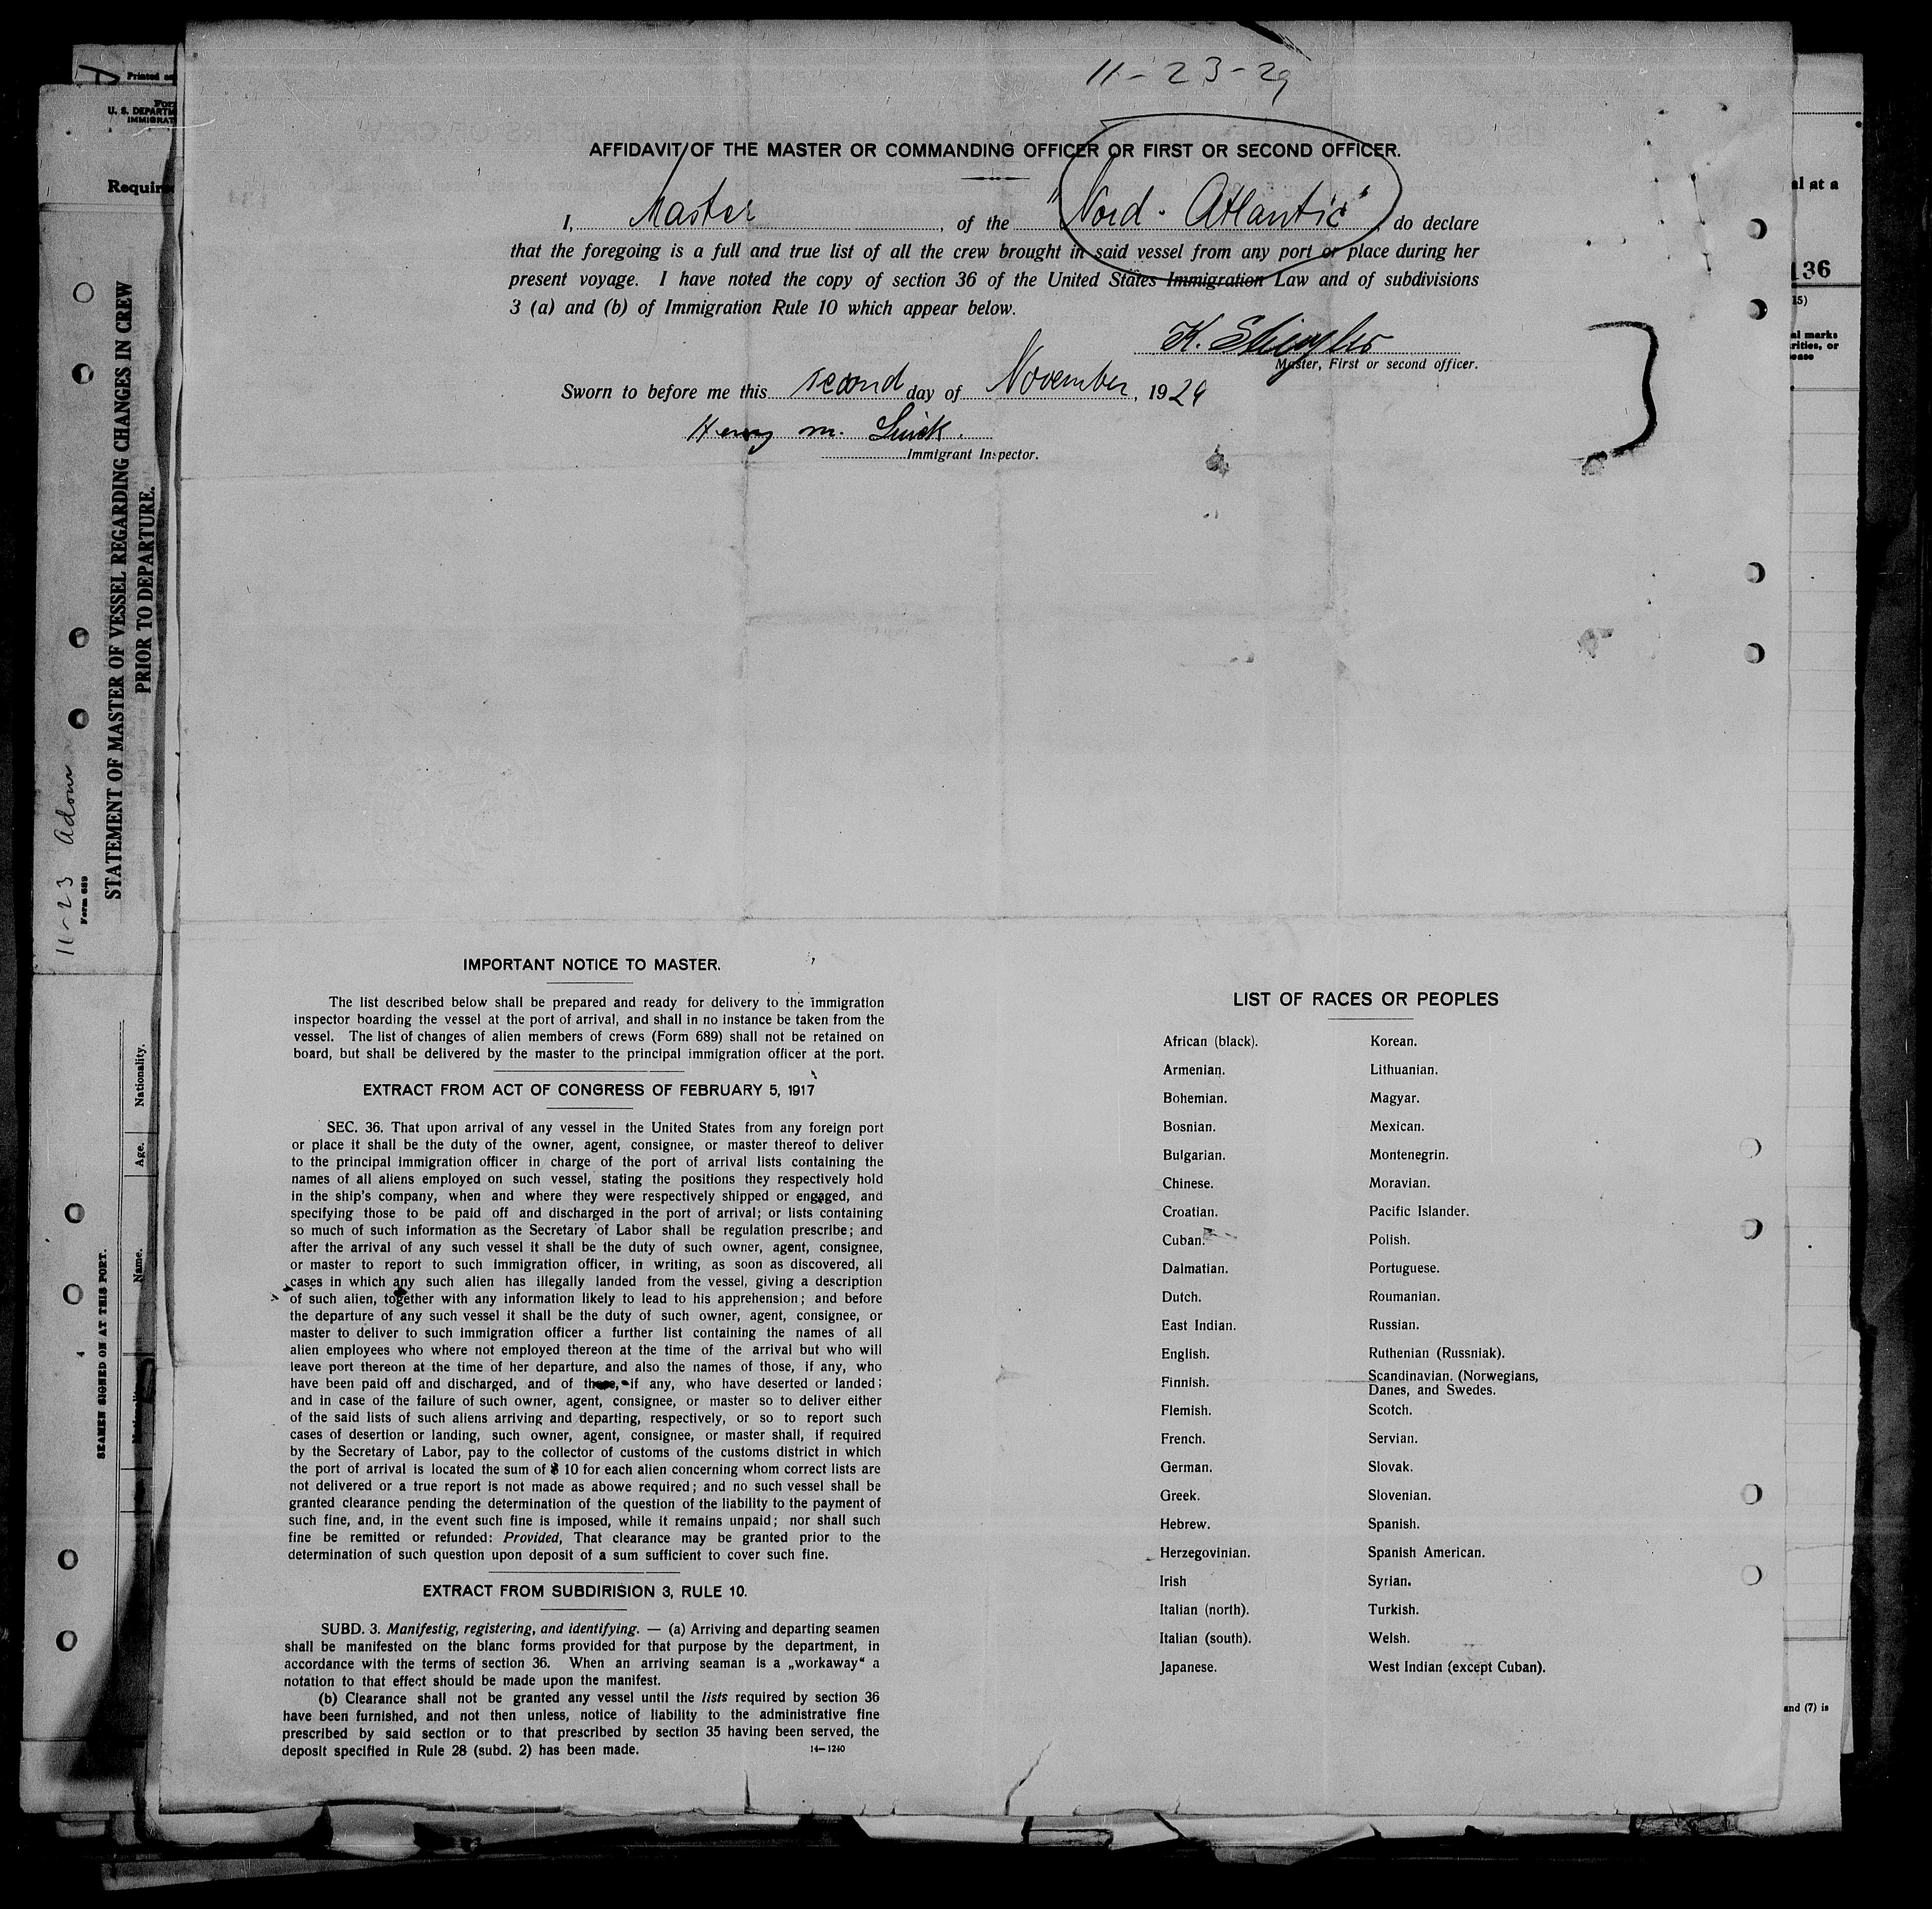 11-23-29
AFFIDAVIT OF THE MASTER OR COMMANDING OFFICER OR FIRST OR SECOND OFFICER.
I, Master, of the "Nord-Atlantic" do declare
that the foregoing is a full and true list of all the crew brought in said vessel from any port or place during her
present voyage. I have noted the copy of section 36 of the United States Immigration Law and of subdivisions
3 (a) and (b) of Immigration Rule 10 which appear below.
K.
Master, First or second officer.
Sworn to before me this second day of November, 1929
Henry M.
Immigrant Inspector.
IMPORTANT NOTICE TO MASTER.
The list described below shall be prepared and ready for delivery to the immigration
inspector boarding the vessel at the port of arrival, and shall in no instance be taken from the
vessel. The list of changes of alien members of crews (Form 689) shall not be retained on
board, but shall be delivered by the master to the principal immigration officer at the port.
EXTRACT FROM ACT OF CONGRESS OF FEBRUARY 5, 1917
SEC. 36. That upon arrival of any vessel in the United States from any foreign port
or place it shall be the duty of the owner, agent, consignee, or master thereof to deliver
to the principal immigration officer in charge of the port of arrival lists containing the
names of all aliens employed on such vessel, stating the positions they respectively hold
in the ship's company, when and where they were respectively shipped or engaged, and
specifying those to be paid off and discharged in the port of arrival; or lists containing
so much of such information as the Secretary of Labor shall be regulation prescribe; and
after the arrival of any such vessel it shall be the duty of such owner, agent, consignee,
or master to report to such immigration officer, in writing, as soon as discovered, all
cases in which any such alien has illegally landed from the vessel, giving a description
of such alien, together with any information likely to lead to his apprehension; and before
the departure of any such vessel it shall be the duty of such owner, agent, consignee, or
master to deliver to such immigration officer a further list containing the names of all
alien employees who where not employed thereon at the time of the arrival but who will
leave port thereon at the time of her departure, and also the names of those, if any, who
have been paid off and discharged, and of those, if any, who have deserted or landed;
and in case of the failure of such owner, agent, consignee, or master so to deliver either
of the said lists of such aliens arriving and departing, respectively, or so to report such
cases of desertion or landing, such owner, agent, consignee, or master shall, if required
by the Secretary of Labor, pay to the collector of customs of the customs district in which
the port of arrival is located the sum of $ 10 for each alien concerning whom correct lists are
not delivered or a true report is not made as abowe required; and no such vessel shall be
granted clearance pending the determination of the question of the liability to the payment of
such fine, and, in the event such fine is imposed, while it remains unpaid; nor shall such
fine be remitted or refunded: Provided, That clearance may be granted prior to the
determination of such question upon deposit of a sum sufficient to cover such fine.
EXTRACT FROM SUBDIRISION 3, RULE 10.
SUBD. 3. Manifestig, registering, and identifying. — (a) Arriving and departing seamen
shall be manifested on the blanc forms provided for that purpose by the department, in
accordance with the terms of section 36. When an arriving seaman is a „workaway“ a
notation to that effect should be made upon the manifest.
(b) Clearance shall not be granted any vessel until the lists required by section 36
have been furnished, and not then unless, notice of liability to the administrative fine
prescribed by said section or to that prescribed by section 35 having been served, the
deposit specified in Rule 28 (subd. 2) has been made.
14-1240
LIST OF RACES OR PEOPLES
African (black). Korean.
Armenian. Lithuanian.
Bohemian. Magyar.
Bosnian. Mexican.
Bulgarian. Montenegrin.
Chinese. Moravian.
Croatian. Pacific Islander.
Cuban. Polish.
Dalmatian. Portuguese.
Dutch. Roumanian.
East Indian. Russian.
English. Ruthenian (Russniak).
Finnish. Scandinavian. (Norwegians,
Danes, and Swedes.
Flemish. Scotch.
French. Servian.
German. Slovak.
Greek. Slovenian.
Hebrew. Spanish.
Herzegovinian. Spanish American.
Irish Syrian.
Italian (north). Turkish.
Italian (south). Welsh.
Japanese. West Indian (except Cuban).
Printed
U. S. DEPARTM
IMMIGRAT
Require
STATEMENT OF MASTER OF VESSEL REGARDING CHANGES IN CREW
PRIOR TO DEPARTURE.
11-23
Form 689
SEAMEN SIGNED ON AT THIS PORT.
Name.
Age.
Nationality.
4
al at a
136
15)
al marks
rities, or
ease
and (7) is